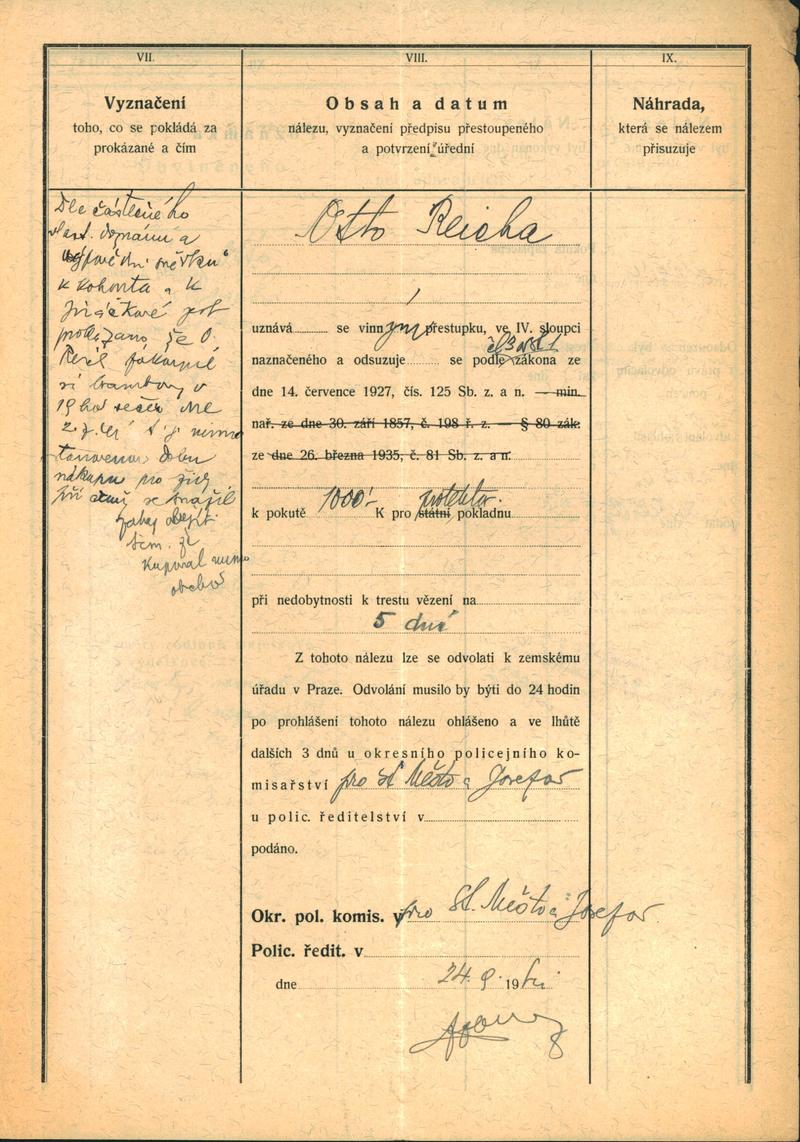 VII.
Vyznačení
toho, co se pokládá za
prokázané a čím
Dle částečného
vlast. doznání a
K Kohouta a K
jest
prokázáno, že O.
brambory v
19 hod večer
mimo
dobu
nákupu pro židy
VIII.
Obsah a datum
nálezu, vyznačení předpisu přestoupeného
a potvrzení úřední
Otto Reicha
uznává se vinným přestupku, ve IV. sloupci
naznačeného a odsuzuje se podle zákona ze
dne 14. července 1927, čís. 125 Sb. z. a n. — min.
nař. ze dne 30. září 1857, č. 198 ř. z. — § 80 zák.
ze dne 26. března 1935, č. 81 Sb. z. a n.
protektor.
k pokutě 1000'- K pro státní pokladnu
při nedobytnosti k trestu vězení na
5 dní
Z tohoto nálezu lze se odvolati k zemskému
úřadu v Praze. Odvolání musilo by býti do 24 hodin
po prohlášení tohoto nálezu ohlášeno a ve lhůtě
dalších 3 dnů u okresního policejního ko-
misařství pro St Město a Josefov
u polic. ředitelství v
podáno.
Okr. pol. komis. v pro St. Město a Josefov
Polic. ředit. v
dne 24. 9. 19
IX.
Náhrada,
která se nálezem
přisuzuje